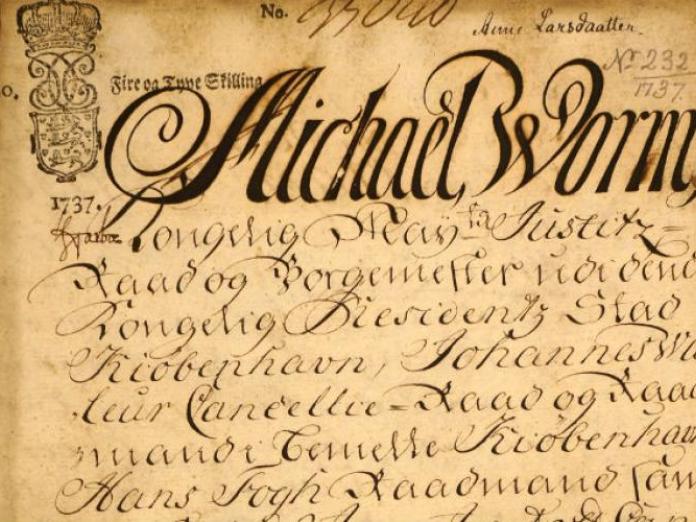 No.
Anne Larsdaatter.
No 232
1737.
Fire og Tyve Skilling
Michael Worm,
1737.
Kongelig May:ts Justitz=
Raad og Borgemester udi den
Kongelig Residentz Stad
Kiøbenhavn, Johannes
leur Cancellie=Raad og Raad
mand i bemelte Kiøbenhavn
Hans Fogh Raadmand sam